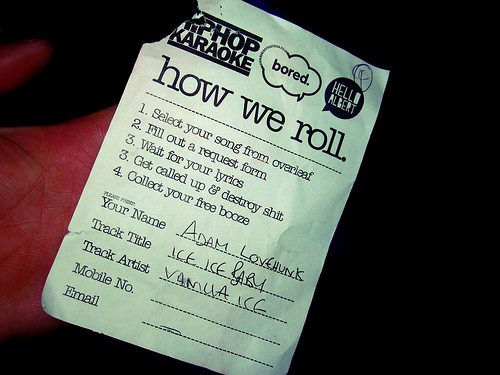 HIPHOP
KARAOKE
bored.
HELLO
ALBERT
how we roll.
1. Select your song from overleaf
2. Fill out a request form
3. Wait for your lyrics
3. Get called up & destroy shit
4. Collect your free booze
PLEASE PRINT!
Your Name ADAM LOVEHUNK
Track Title ICE ICE BABY
Track Artist VANILLA ICE
Mobile No.
Email